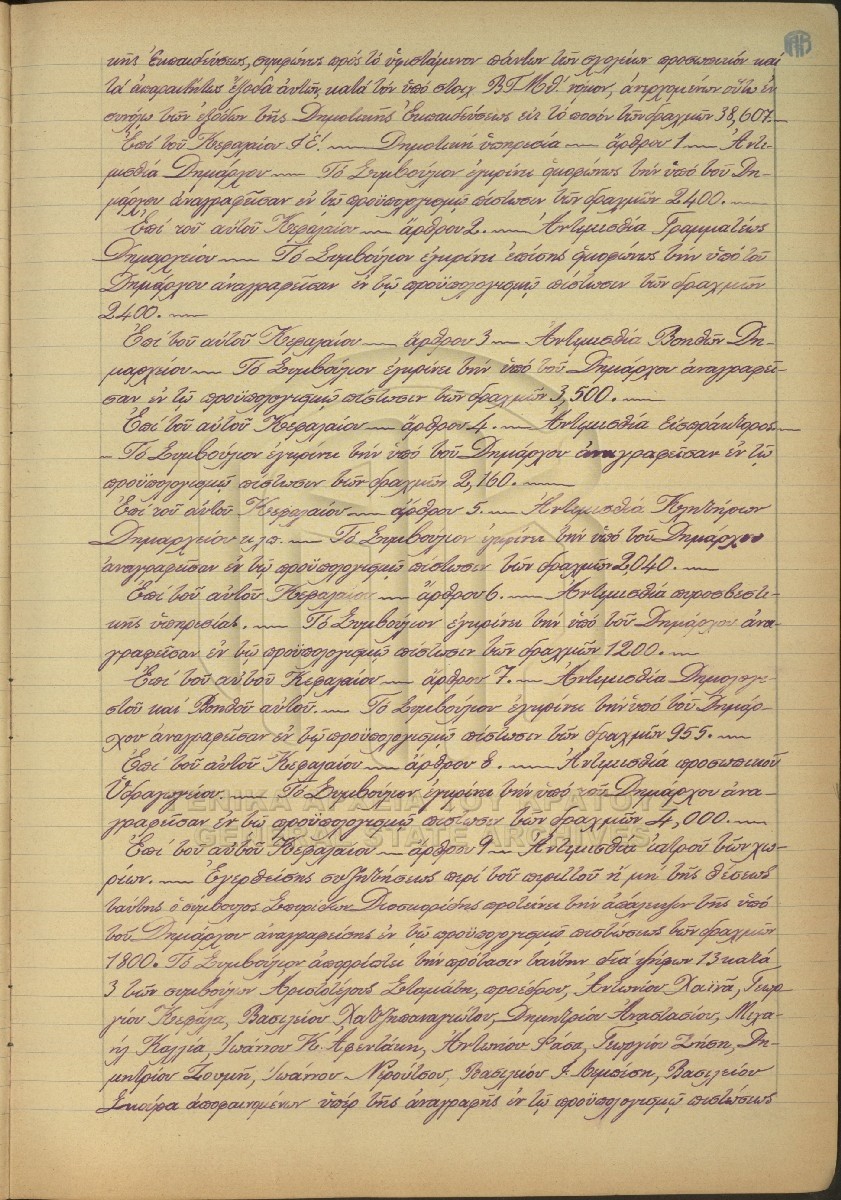 κῆς Ἐκπαιδεύσεως, συμφώνως πρὸς τὸ ὑφιστάμενον πάντων τῶν σχολείων προσωπικὸν καὶ
τὰ ἀπαραίτητως ἔξοδα αὐτῶν, κατὰ τὸν ὑπὸ στοιχ ΒΤΜΘ΄. νόμον, ἀνερχομένων οὕτω ἐν
συνόλῳ τῶν ἐξόδων τῆς Δημοτικῆς Ἐκπαιδεύσεως εἰς τὸ ποσὸν τῶν δραχμῶν 38,607.—
Ἐπὶ τοῦ Κεφαλαίου Ε΄. — Δημοτικὴ ὑπηρεσία — ἄρθρον 1 — Ἀντι-
μισθία Δημάρχου — Τὸ Συμβούλιον ἐγκρίνει ὁμοφώνως τὴν ὑπὸ τοῦ Δη-
μάρχου ἀναγραφεῖσαν ἐν τῷ προϋπολογισμῷ πίστωσιν τῶν δραχμῶν 2400. —
Ἐπὶ τοῦ αὐτοῦ Κεφαλαίου — ἄρθρον 2. — Ἀντιμισθία Γραμματέως
Δημαρχείου — Τὸ Συμβούλιον ἐγκρίνει ἐπίσης ὁμοφώνως τὴν ὑπὸ τοῦ
Δημάρχου ἀναγραφεῖσαν ἐν τῷ προϋπολογισμῷ πίστωσιν τῶν δραχμῶν
2400. —
Ἐπὶ τοῦ αὐτοῦ Κεφαλαίου — ἄρθρον 3 — Ἀντιμισθία Βοηθῶν Δη-
μαρχείου — Τὸ Συμβούλιον ἐγκρίνει τὴν ὑπὸ τοῦ Δημάρχου ἀναγραφεῖ-
σαν ἐν τῷ προϋπολογισμῷ πίστωσιν τῶν δραχμῶν 3,500. —
Ἐπὶ τοῦ αὐτοῦ Κεφαλαίου — ἄρθρον 4. — Ἀντιμισθία εἰσπράκτορος —
— Τὸ Συμβούλιον ἐγκρίνει τὴν ὑπὸ τοῦ Δημάρχου ἀναγραφεῖσαν ἐν τῷ
προϋπολογισμῷ πίστωσιν τῶν δραχμῶν 2,160. —
Ἐπὶ τοῦ αὐτοῦ Κεφαλαίου — ἄρθρον 5. — Ἀντιμισθία Κλητήρων
Δημαρχείου κλπ. — Τὸ Συμβούλιον ἐγκρίνει τὴν ὑπὸ τοῦ Δημάρχου
ἀναγραφεῖσαν ἐν τῷ προϋπολογισμῷ πίστωσιν τῶν δραχμῶν 2,040. —
Ἐπὶ τοῦ αὐτοῦ Κεφαλαίου — ἄρθρον 6. — Ἀντιμισθία πυροσβεστι-
κῆς ὑπηρεσίας. — Τὸ Συμβούλιον ἐγκρίνει τὴν ὑπὸ τοῦ Δημάρχου ἀνα-
γραφεῖσαν ἐν τῷ προϋπολογισμῷ πίστωσιν τῶν δραχμῶν 1200. —
Ἐπὶ τοῦ αὐτοῦ Κεφαλαίου — ἄρθρον 7. — Ἀντιμισθία Δημολογι-
στοῦ καὶ Βοηθοῦ αὐτοῦ. — Τὸ Συμβούλιον ἐγκρίνει τὴν ὑπὸ τοῦ Δημάρ-
χου ἀναγραφεῖσαν ἐν τῷ προϋπολογισμῷ πίστωσιν τῶν δραχμῶν 955. —
Ἐπὶ τοῦ αὐτοῦ Κεφαλαίου — ἄρθρον 8. — Ἀντιμισθία προσωπικοῦ
Ὑδραγωγείου. — Τὸ Συμβούλιον ἐγκρίνει τὴν ὑπὸ τοῦ Δημάρχου ἀνα-
γραφεῖσαν ἐν τῷ προϋπολογισμῷ πίστωσιν τῶν δραχμῶν 4,000. —
ΓΕΝΙΚΑ ΑΡΧΕΙΑ ΤΟΥ ΚΡΑΤΟΥΣ
GENERAL STATE ARCHIVES
Ἐπὶ τοῦ αὐτοῦ Κεφαλαίου — ἄρθρον 9 — Ἀντιμισθία ἰατροῦ τῶν χω-
ρίων. — Ἐγερθείσης συζητήσεως περὶ τοῦ περιττοῦ ἢ μὴ τῆς θέσεως
ταύτης ὁ σύμβουλος Σπυρίδων Διοσκορίδης προτείνει τὴν ἀπάλειψιν τῆς ὑπὸ
τοῦ Δημάρχου ἀναγραφείσης ἐν τῷ προϋπολογισμῷ πιστώσεως τῶν δραχμῶν
1800. Τὸ Συμβούλιον ἀπορρίπτει τὴν πρότασιν ταύτην διὰ ψήφων 13 κατὰ
3 τῶν συμβούλων Ἀριστοτέλους Σταμάτη, προέδρου, Ἀντωνίου Χαϊνᾶ, Γεωρ-
γίου Κεφάλα, Βασιλείου Χατζηπαναγιώτου, Δημητρίου Ἀναστασίου, Μιχα-
ὴλ Καλλία, Ἰωάννου Κ. Ἀφεντάκη, Ἀντωνίου Φασα, Γεωργίου Ζήση, Δη-
μητρίου Ζουμῆ, Ἰωάννου Νερούτσου, Βασιλείου Βασιλείου
Σκούρα ἀποφαινομένων ὑπὲρ τῆς ἀναγραφῆς ἐν τῷ προϋπολογισμῷ πιστώσεως